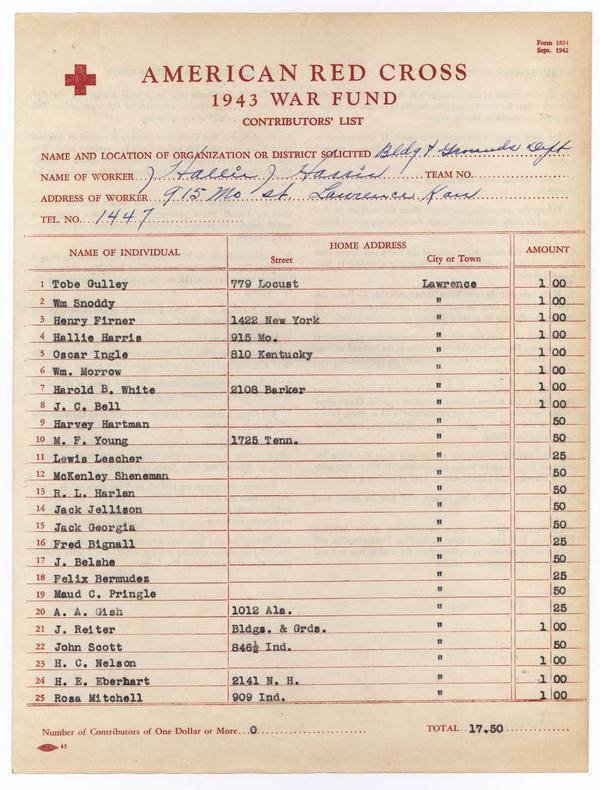 Form 1824
Sept. 1942
AMERICAN RED CROSS
1943 WAR FUND
CONTRIBUTORS' LIST
NAME AND LOCATION OF ORGANIZATION OR DISTRICT SOLICITED Bldg & Grounds Dept
NAME OF WORKER Hallie J Harris TEAM NO.
ADDRESS OF WORKER 915 Mo st. Lawrence Kan
TEL. NO. 1447
NAME OF INDIVIDUAL HOME ADDRESS AMOUNT
Street City or Town
1 Tobe Gulley 779 Locust Lawrence 1 00
2 Wm Snoddy " 1 00
3 Henry Firner 1422 New York " 1 00
4 Hallie Harris 915 Mo. " 1 00
5 Oscar Ingle 810 Kentucky " 1 00
6 Wm. Morrow " 1 00
7 Harold B. White 2108 Barker " 1 00
8 J. C. Bell " 1 00
9 Harvey Hartman " 50
10 M. F. Young 1725 Tenn. " 50
11 Lewis Lescher " 25
12 McKenley Sheneman " 50
13 R. L. Harlan " 50
14 Jack Jellison " 50
15 Jack Georgia " 50
16 Fred Bignall " 25
17 J. Belshe " 50
18 Felix Bermudez " 25
19 Maud C. Pringle " 50
20 A. A. Gish 1012 Ala. " 25
21 J. Reiter Bldgs. & Grds. " 1 00
22 John Scott 846½ Ind. " 50
23 H. C. Nelson " 1 00
24 H. E. Eberhart 2141 N. H. " 1 00
25 Rosa Mitchell 909 Ind. " 1 00
Number of Contributors of One Dollar or More...0 TOTAL 17.50
43